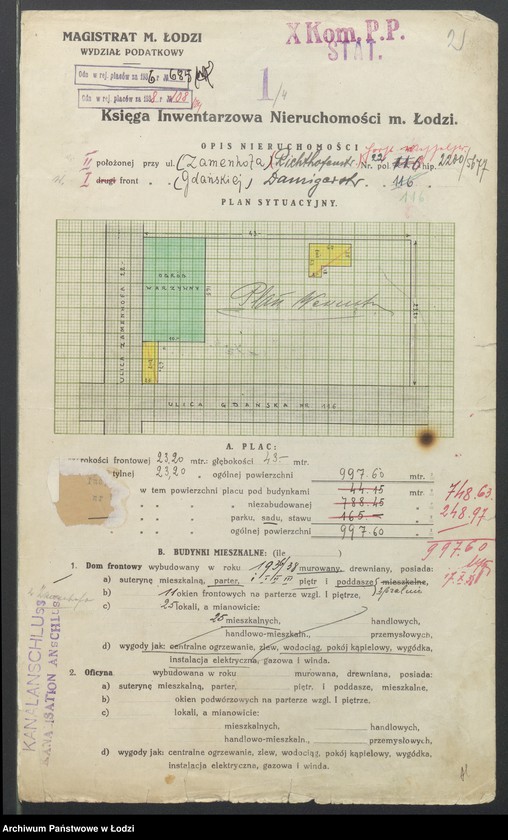 MAGISTRAT M. ŁODZI
WYDZIAŁ PODATKOWY
X Kom. P.P.
STAT.
2
Odn w rej. placów za 1936 r. № 685
Odn w rej. placów za 1938 r. № 108
1/4
Księga Inwentarzowa Nieruchomości m. Łodzi.
OPIS NIERUCHOMOŚCI
II położonej przy ul. (Zamenhofa) Richthofenstr. Nr. pol. 22 116 hip. 2280/5677
I drugi front „ „ (Gdańskiej) Danzigerstr. „ 116
116
PLAN SYTUACYJNY.
43.-
ULICA ZAMENHOFA 22.-
OGRÓD
WARZYWNY
Plan
ULICA GDAŃSKA NR. 116
A. PLAC:
szerokości frontowej 23,20 mtr.: głębokości 43.- mtr.
tylnej 23,20 „ ogólnej powierzchni 997.60 mtr.
w tem powierzchni placu pod budynkami 44.15 mtr. 748.63
„ „ „ niezabudowanej 788.45 „ 248.97
„ „ „ parku, sadu, stawu 165.- „
ogólnej powierzchni 997.60 „ 997.60
B. BUDYNKI MIESZKALNE: (ile )
1. Dom frontowy wybudowany w roku 1937/38 murowany, drewniany, posiada:
a) suterynę mieszkalną, parter, I-II-III piętr i poddasze mieszkalne,
b) 11 okien frontowych na parterze wzgl. I piętrze, 3 pralnie
c) 25 lokali, a mianowicie:
25 mieszkalnych, handlowych,
handlowo-mieszkaln., przemysłowych,
d) wygody jak: centralne ogrzewanie, zlew, wodociąg, pokój kąpielowy, wygódka,
instalacja elektryczna, gazowa i winda.
2. Oficyna wybudowana w roku murowana, drewniana, posiada:
a) suterynę mieszkalną, parter, piętr. i poddasze, mieszkalne,
b) okien podwórzowych na parterze wzgl. I piętrze,
c) lokali, a mianowicie:
mieszkalnych, handlowych,
handlowo-mieszkaln., przemysłowych,
d) wygody jak: centralne ogrzewanie, zlew, wodociąg, pokój kąpielowy, wygódka,
instalacja elektryczna, gazowa i winda.
KANALANSCHLUSS
KANALISATION ANSCHLUSS
Archiwum Państwowe w Łodzi